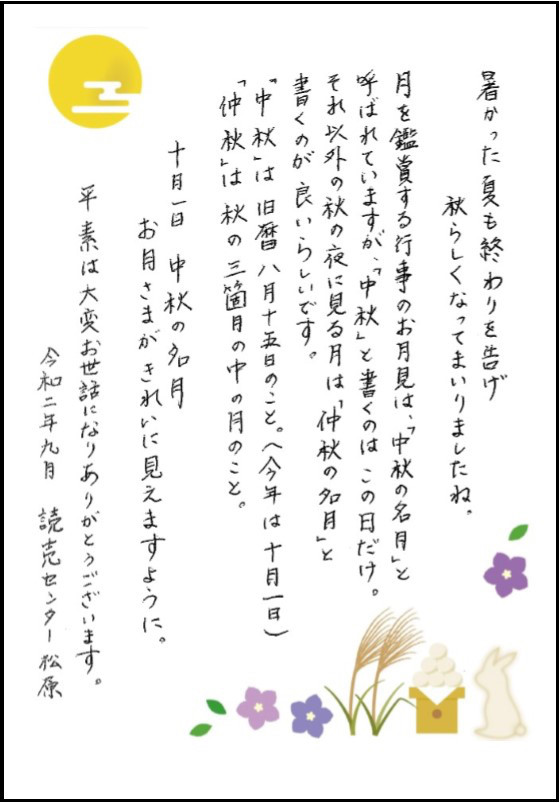 暑かった夏も終わりを告げ
秋らしくなってまいりましたね。
月を鑑賞する行事のお月見は、「中秋の名月」と
呼ばれていますが、「中秋」と書くのはこの日だけ。
それ以外の秋の夜に見る月は「仲秋の名月」と
書くのが良いらしいです。
「中秋」は旧暦八月十五日のこと。(今年は十月一日)
「仲秋」は秋の三箇月の中の月のこと。
十月一日 中秋の名月
お月さまがきれいに見えますように。
平素は大変お世話になりありがとうございます。
令和二年九月 読売センター松原